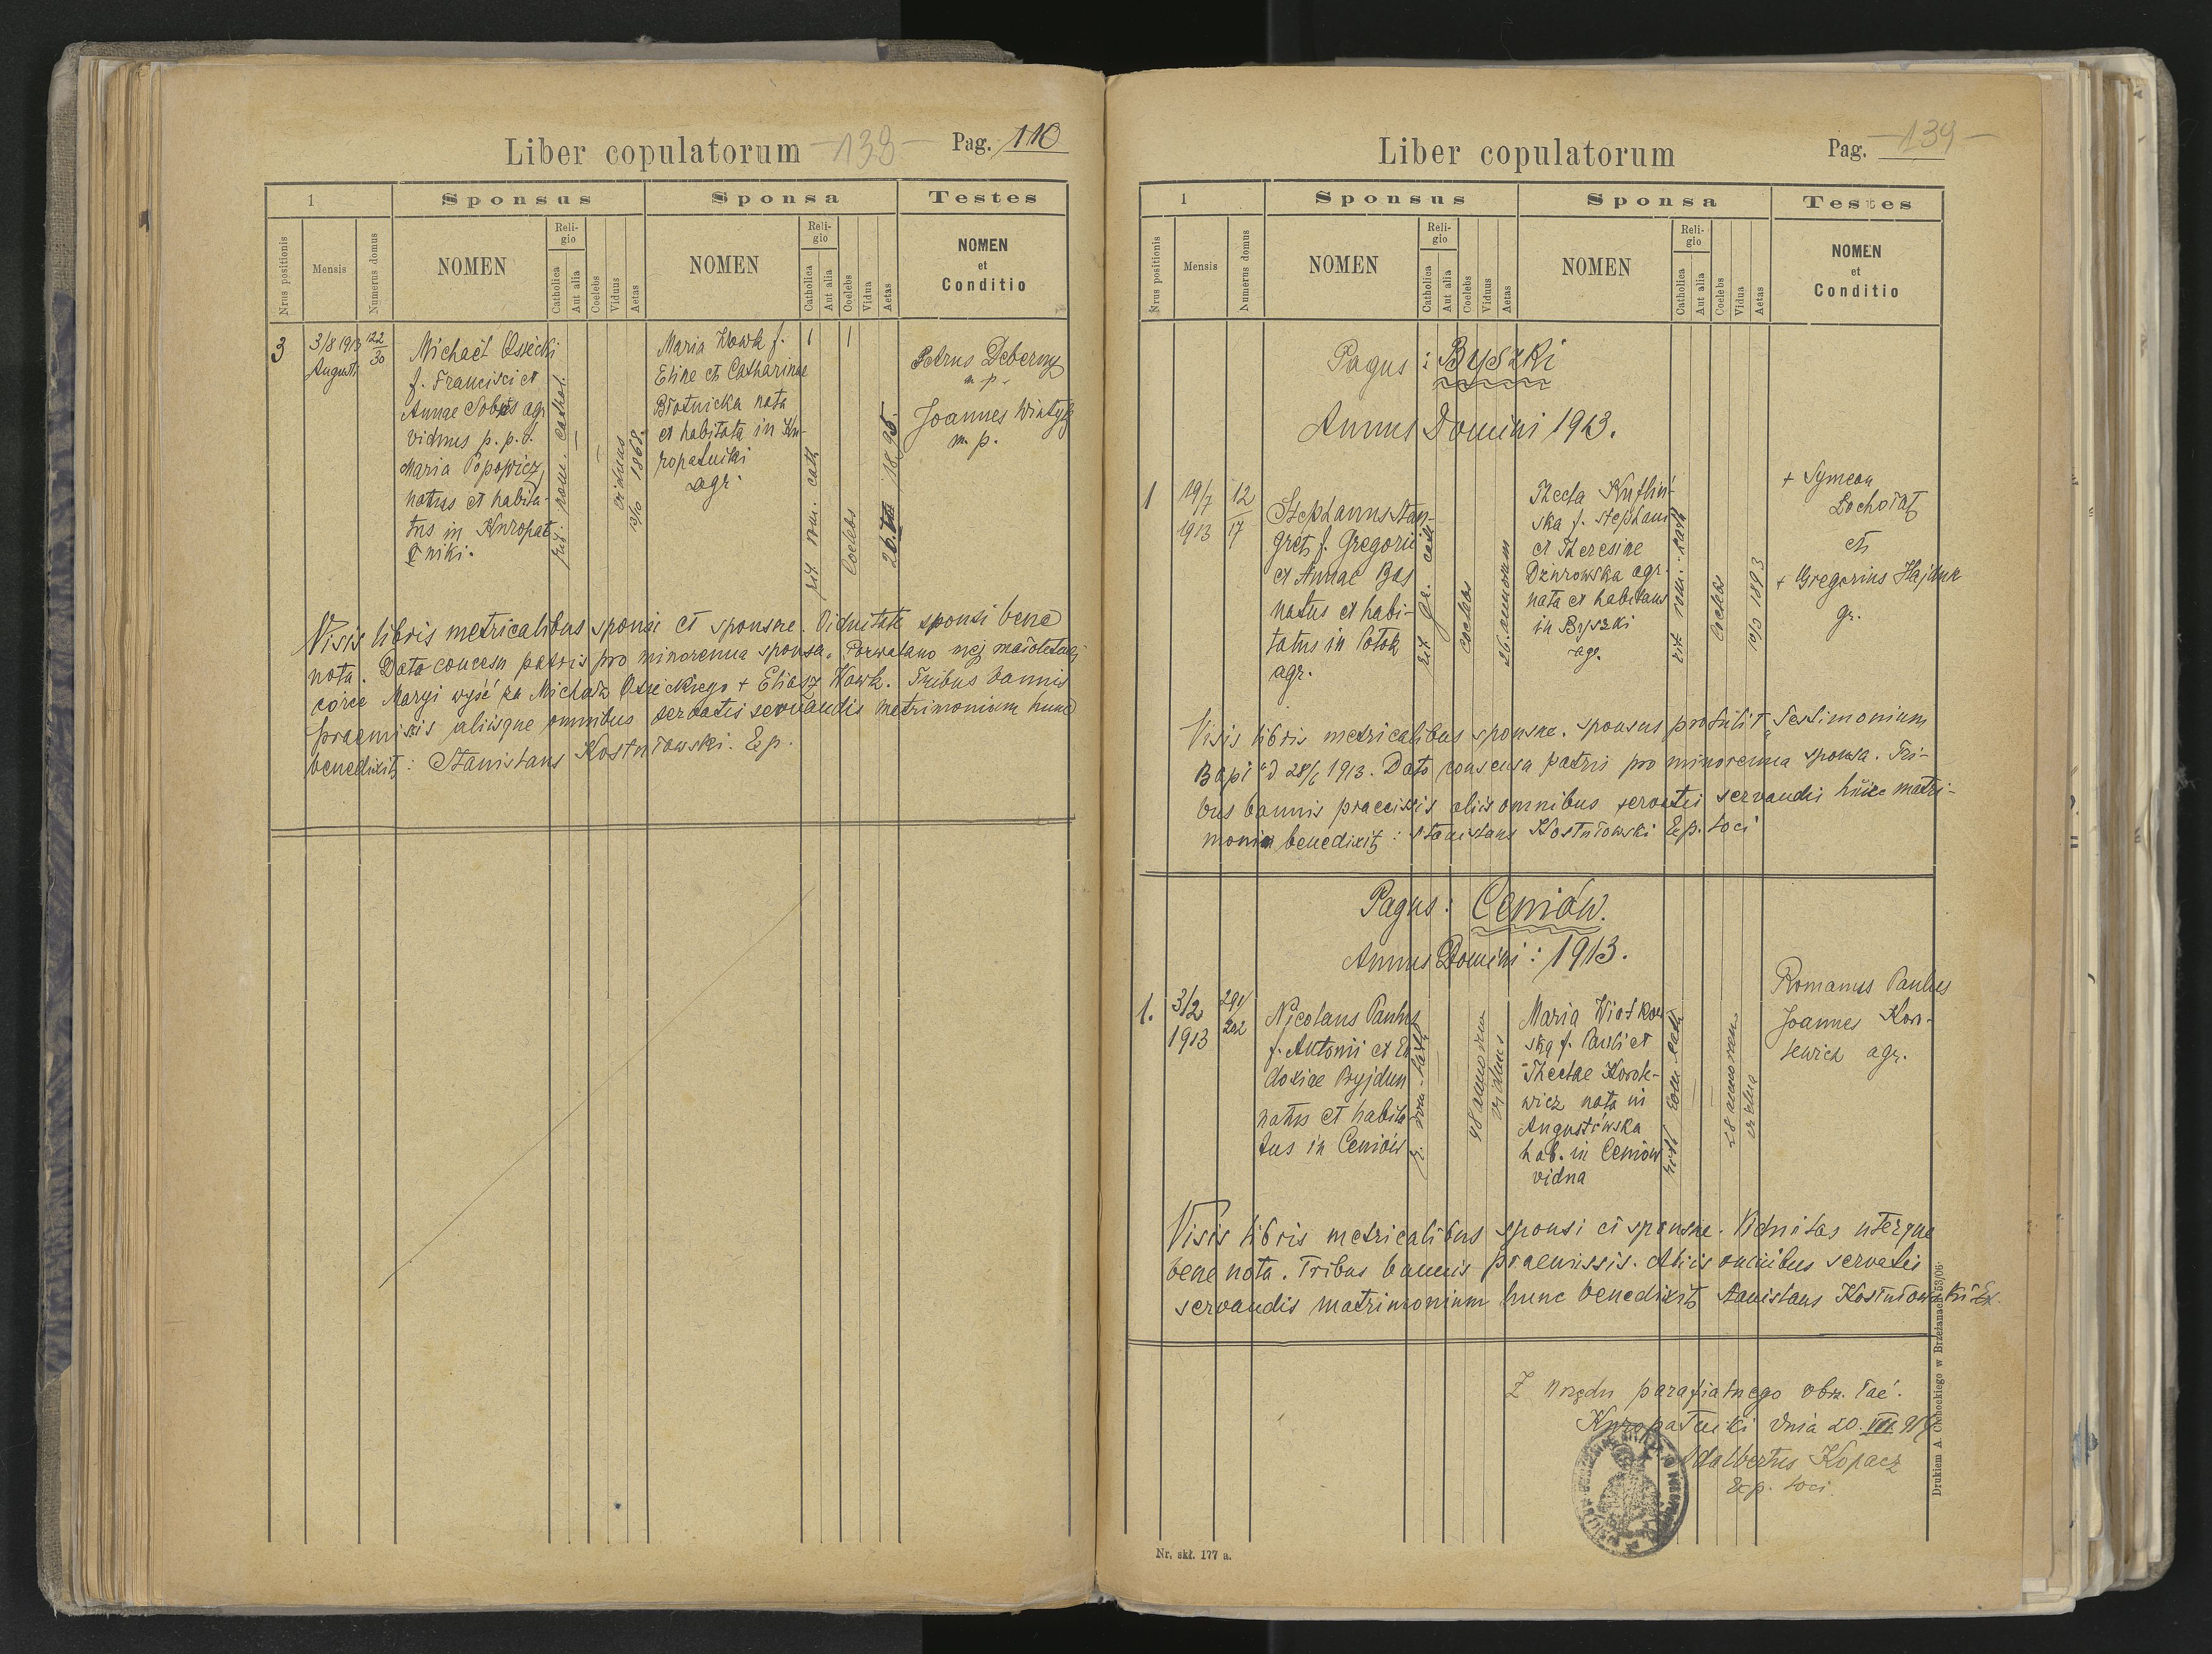 Liber copulatorum
-138-
Pag. 110
1
Sponsus
Sponsa
Testes
Nrus positionis
Mensis
Numerus domus
NOMEN
Religio
Catholica
Aut alia
Coelebs
Viduus
Aetas
NOMEN
Religio
Catholica
Aut alia
Coelebs
Vidua
Aetas
NOMEN
et
Conditio
3
3/8 1913
Augusti
122
30
Michael Osiecki
f. Francisci et
Annae Sobus agr.
viduus p. p. d.
Maria Popowicz,
natus et habita-
tus in Kuropat
niki.
rit. rom. cathol.
viduus
13/10 1868.
Maria Wowk f.
Eliae et Catharinae
Błotnicka nata
et habitata in Ku-
ropatniki
agr.
rit. rom. cath
Coelebs
1895.
Petrus Deberny
m. p.
Joannes Wintyk
m. p.
Visis libris metricalibus sponsi et sponsae. Viduitate sponsi bene
nota. Dato concesu patris pro minorenna sponsa. Pozwalano mej małoletniej
córce Maryi wyść za Michała Osieckiego + Eliasz Wowk. Tribus bannis
praemissis aliisque omnibus servatis servandis matrimonium hunc
benedixit: Stanislaus Kostułowski. Ex p.
Liber copulatorum
Pag. -139-
1
Sponsus
Sponsa
Testes
Nrus positionis
Mensis
Numerus domus
NOMEN
Religio
Catholica
Aut alia
Coelebs
Viduus
Aetas
NOMEN
Religio
Catholica
Aut alia
Coelebs
Vidua
Aetas
NOMEN
et
Conditio
Pagus: Byszki
Annus Domini 1913.
1
19/7
1913
12
17
Stephanus Stan-
gret f. Gregorii
et Annae Bas
natus et habi-
tatus in Potok
agr.
rit. gr. cath
coelebs
26. annorum
Thecla Kuflin-
ska f. Stephani
et Theresiae
Dziurowska agr.
nata et habitans
in Byszki
agr.
rit. rom. cath
Coelebs
10/2 1893
+ Symeon
Łochołat
et
+ Gregorius Hajduk
gr.
Visis libris metricalibus sponsae. Sponsus protulit "Testimonium
Bapt" d 28/6 1913. Dato consensu patris pro minorenna sponsa. Tri-
bus bannis praemissis aliis omnibus servatis servandis huic matri-
monio benedixit: Stanislaus Kostułowski Exp. loci
Pagus: Ceniów.
Annus Domini: 1913.
1.
3/2
1913
291
202
Nicolaus Paulus
f. Antonii et Eu
doxiae Byjdun
natus et habita
tus in Ceniów
r. rom. cath
48 annorum
viduus
Maria Wiatkow
ska f. Pauli et
Theclae Korol-
wicz nata in
Augustówska
hab. in Ceniów
vidua
rit. rom. cath
28 annorum
vidua
Romanus Paulus
Joannes Kor-
lewicz agr.
Visis libris metricalibus sponsi et sponsae. Viduitas uterque
bene nota. Tribus bannis praemissis. Aliis omnibus servatis
servandis matrimonium hunc benedixit Stanislaus Kostułowski Ex.
Z urzędu parafialnego obrz. łać.
Kuropatniki dnia 20. VIII
Adalbertus Kopacz
Exp. loci.
Nr. skł. 177 a.
Drukiem A. Cichockiego w Brzeżanach 53/06.